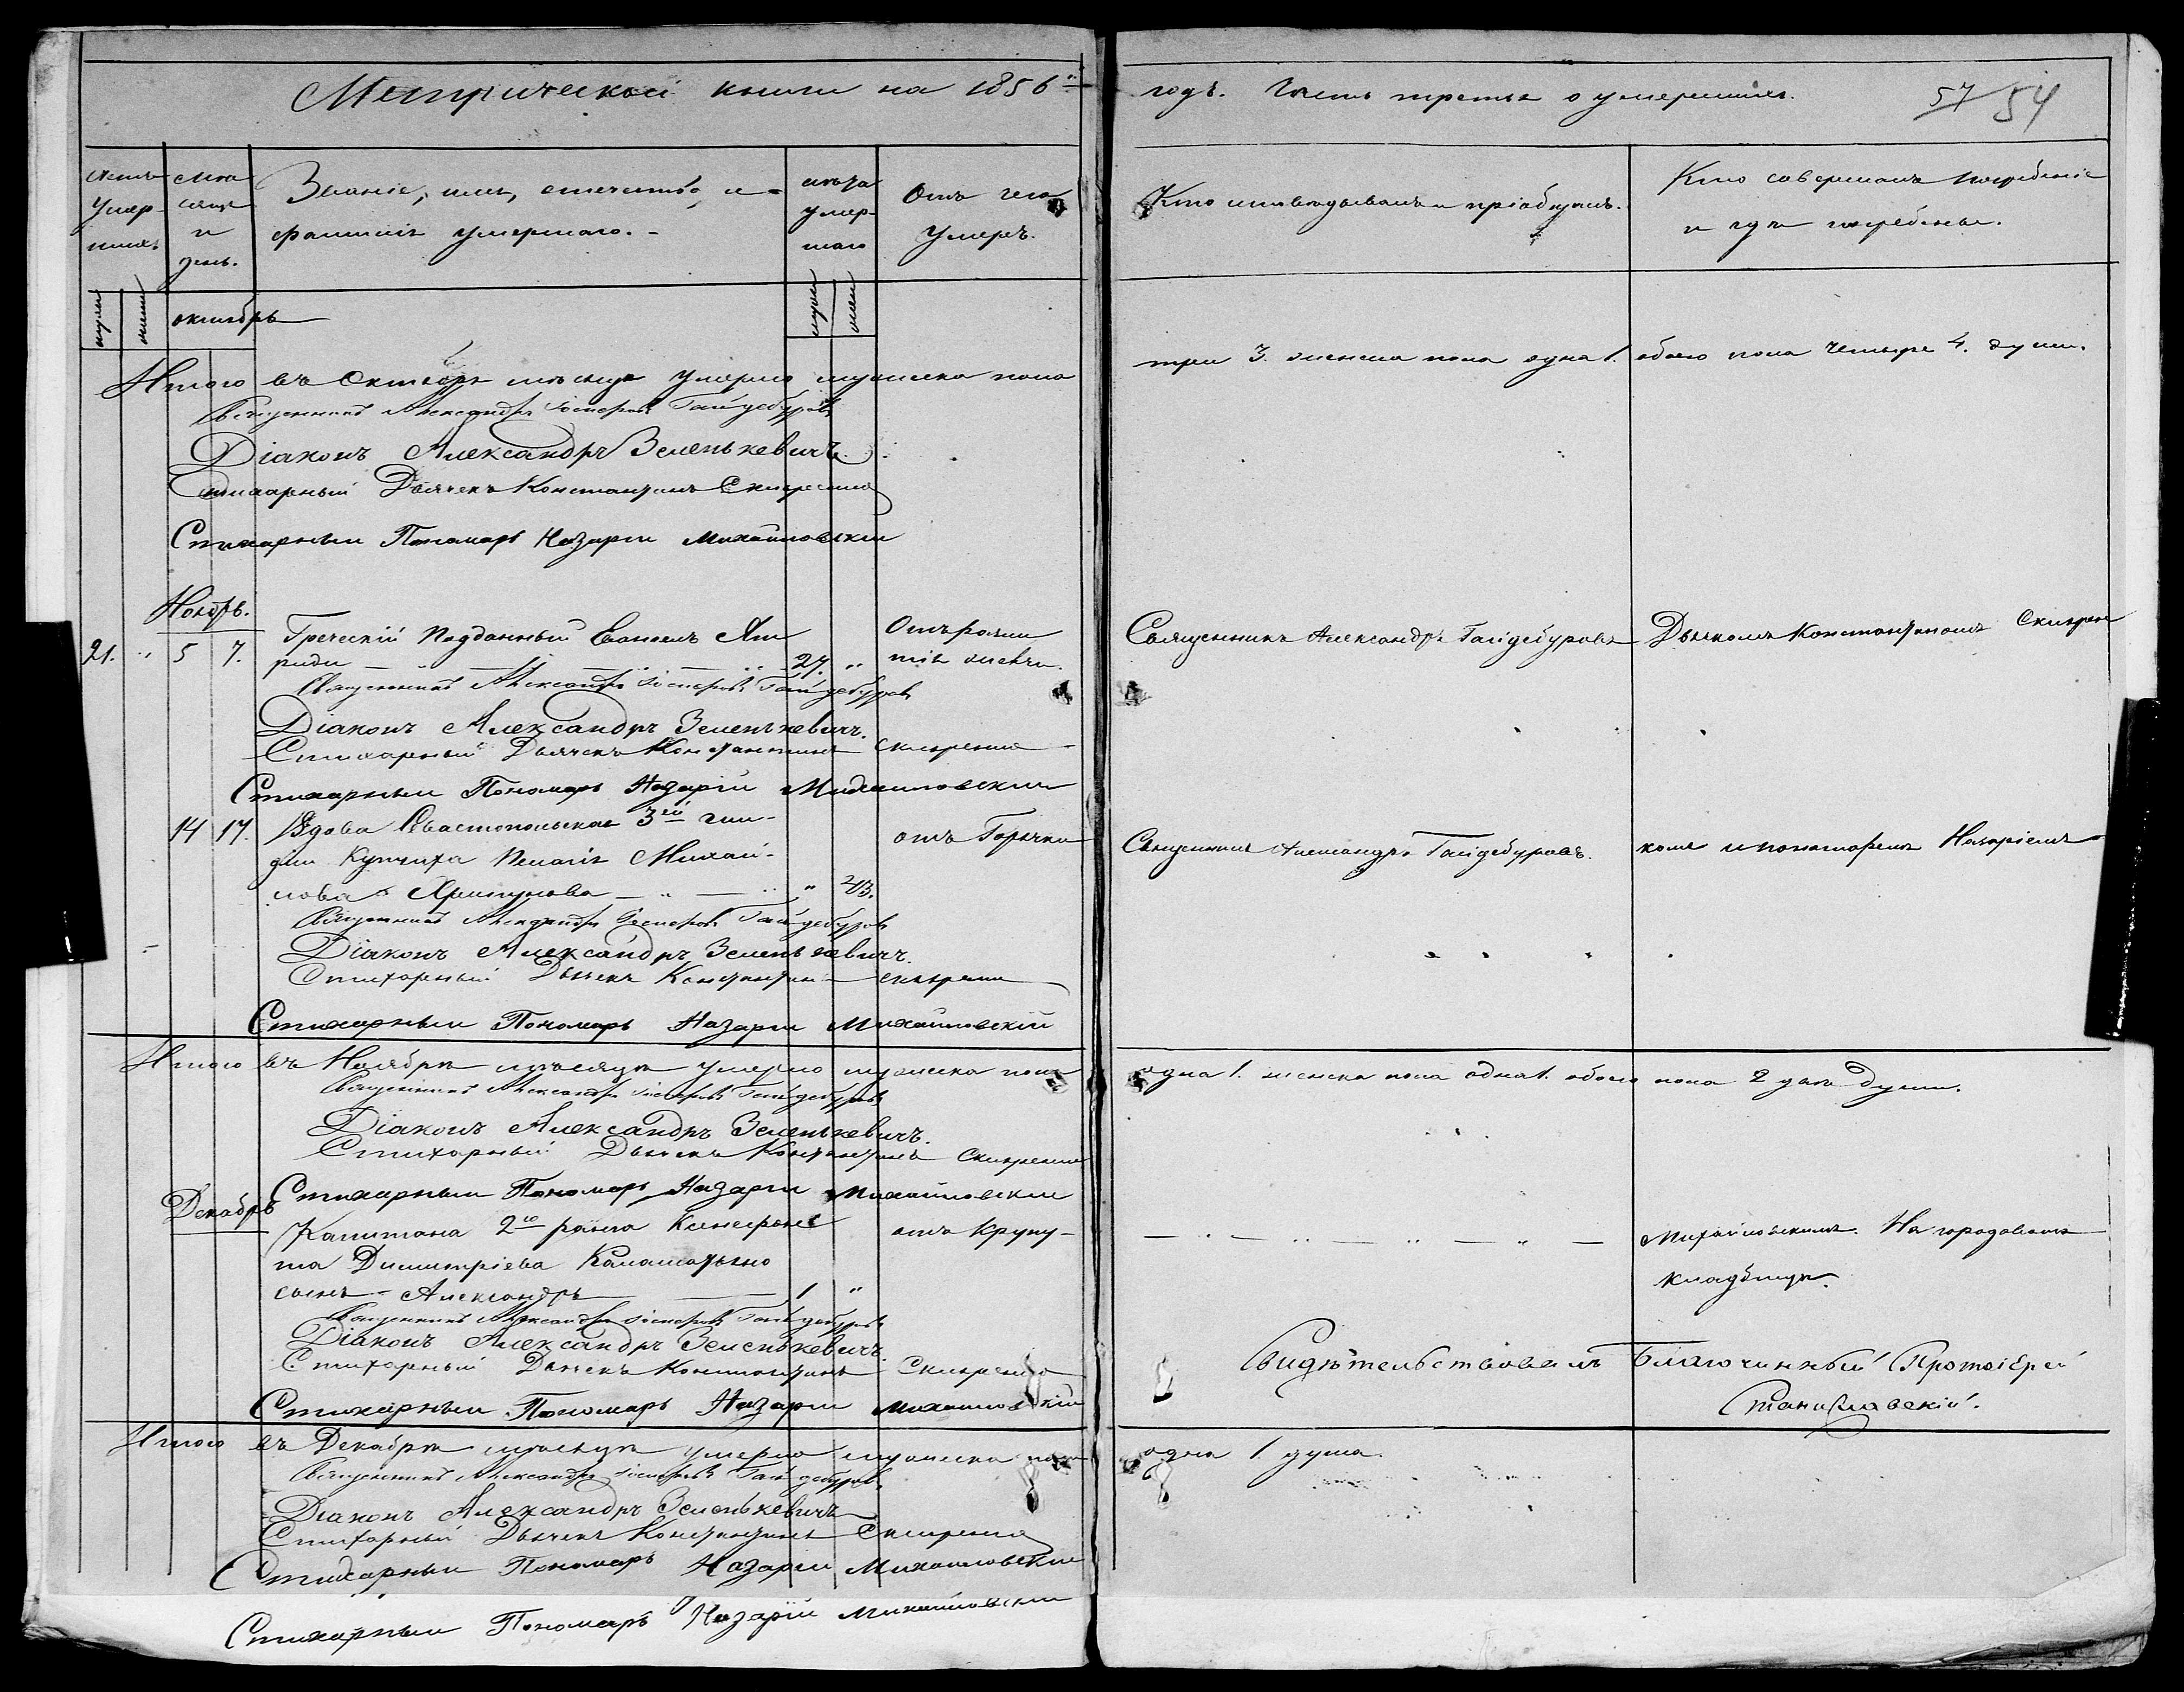 Метрической книги на 1856й
годъ. Часть третья о умершихъ.
57 54
счетъ умершихъ
мѣсяцъ и день.
Званіе, имя, отечество, и фамилія умершаго.
лѣта умершаго
Отъ чего умеръ.
Кто исповѣдывалъ и пріобщалъ.
Кто совершалъ погребеніе и гдѣ погребены.
октябрь
Итого въ Октябрѣ мѣсяцѣ умерло мужеска пола
три 3. женска пола одна 1. обоего пола четыре 4. души.
Священникъ Александръ Гайдебуровъ
Діаконъ Александръ Зеленькевичъ.
Стихарный Дьячекъ Константинъ
Стихарный Пономарь Назарій Михайловскій
Ноябрь.
21. " 5 7. Греческій подданный
риди — 27. "
Священникъ Александръ Гайдебуровъ Дьячкомъ Константиномъ
Священникъ Александръ Гайдебуровъ
Діаконъ Александръ Зеленькевичъ.
Стихарный Дьячекъ Константинъ
Стихарный Пономарь Назарій Михайловскій
14 17. Вдова Севастопольская 3ей гиль- отъ Горячки
діи Купчиха Пелагія Михай-
лова — " 43.
Священникъ Александръ Гайдебуровъ. комъ и пономаремъ Назаріемъ
Священникъ Александръ Гайдебуровъ
Діаконъ Александръ Зеленькевичъ.
Стихарный Дьячекъ Константинъ
Стихарный Пономарь Назарій Михайловскій
Итого въ Ноябрѣ мѣсяцѣ умерло мужеска пола
одна 1. женска пола одна 1. обоего пола 2 двѣ души.
Священникъ Александръ Гайдебуровъ
Діаконъ Александръ Зеленькевичъ.
Стихарный Дьячекъ Константинъ
Стихарный Пономарь Назарій Михайловскій
Декабрь
Капитана 2го ранга Ксенофон- отъ Крупу-
та Димитріева
сынъ Александръ — 1 "
Михайловскимъ. На городовомъ
кладбищѣ.
Священникъ Александръ Гайдебуровъ
Діаконъ Александръ Зеленькевичъ.
Стихарный Дьячекъ Константинъ
Стихарный Пономарь Назарій Михайловскій
Свидѣтельствовалъ Благочинный Протоіерей
Станиславскій.
Итого въ Декабрѣ мѣсяцѣ умерло мужеска пола
одна 1 душа.
Священникъ Александръ Гайдебуровъ
Діаконъ Александръ Зеленькевичъ
Стихарный Дьячекъ Константинъ
Стихарный Пономарь Назарій Михайловскій
Стихарный Пономарь Назарій Михайловскій